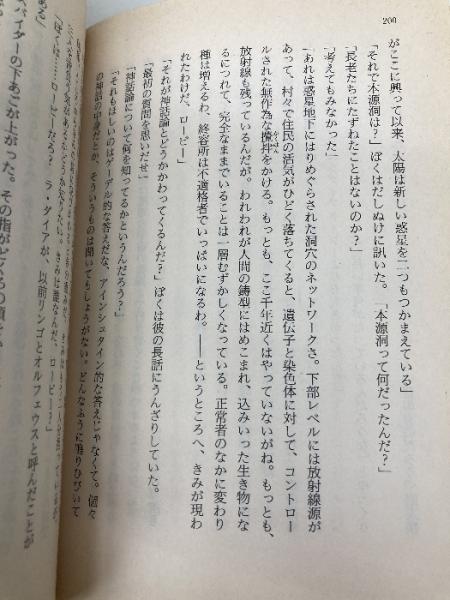 200
がここに興って以来、太陽は新しい惑星を二つもつかまえている」
「それで本源洞は？」ぼくはだしぬけに訊いた。「本源洞って何だったんだ？」
「長老たちにたずねたことはないのか？」
「考えてもみなかった」
「あれは惑星地下にはりめぐらされた洞穴のネットワークさ。下部レベルには放射線源が
あって、村々で住民の活気がひどく落ちてくると、遺伝子と染色体に対して、コントロー
ルされた無作為な攪拌をかける。もっとも、ここ千年近くはやっていないがね。もっとも、
放射線も残っているんだが。われわれが人間の鋳型にはめこまれ、込みいった生き物にな
るにつれて、完全なままでいることは一層むずかしくなっている。正常者のなかに変わり
種は増えるわ、終容所は不適格者でいっぱいになるわ。――というところへ、きみが現わ
れたわけだ、ロービー」
「それが神話論とどうかかわってくるんだ？」ぼくは彼の長話にうんざりしていた。
「最初の質問を思いだせ」
「神話論について何を知ってるかというんだろう？」
「それもほしいのはゲーデル的な答えだな、アインシュタイン的な答えじゃなくて。個々
の神話の中身だとか、そういうものは聞いてもしょうがない。どんなふうに鳴りひびいて
きみは誰なんだ、ロービー？」
「ぼくは……ロービーだろ？ ラ・ダイアが、以前リンゴとオルフェウスと呼んだことが
ある」
スパイダーの下あごが上がった。その指が